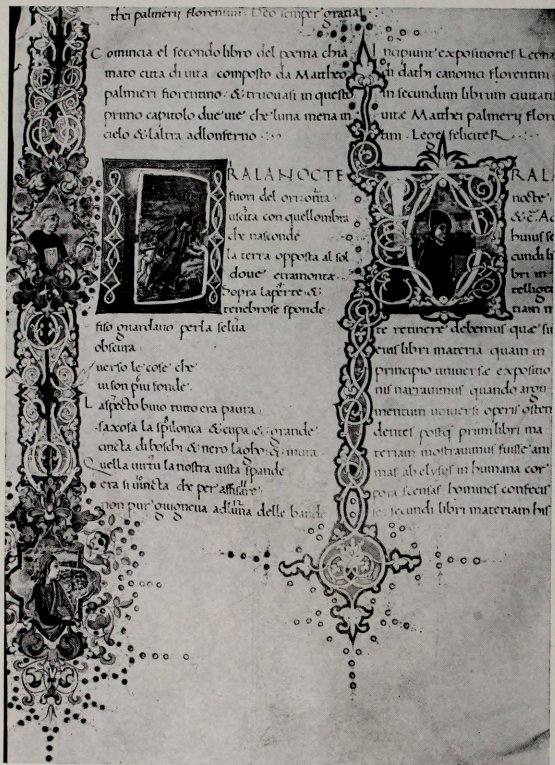 thei palmerii florentini Deo semper gratias
Comincia el secondo libro del poema chia
mato citta di uita composto da Mattheo
palmieri fiorentino · & truouasi in questo
primo capitolo due uie che luna mena in
cielo & laltra adlonferno
RA LA NOCTE
fuori del
uscita con quellombra
che nasconde
la terra opposta al sol
doue
Sopra &
tenebrose sponde
fiso guardano per la selua
obscura
uerso le cose che
ui son piu fonde
Laspecto buio tutto era paura
saxosa la spilonca & cupa & grande
cincta di boschi & nero lagho & mura
Quella uirtu la nostra uista spande
era si uincta che per affisare
non pur giugneua adluna delle bande
Incipiunt expositiones Leona
di dathi canonici florentini
in secundum librum ciuitatis
uitæ Matthei palmerii flore
tini Lege feliciteR
RA LA
nocte
&c̄
huius se
cundi li
bri in
tellige
tiam in
te retinere debemus quæ sit
eius libri materia quam in
principio uniuersæ expositio
nis narrauimus quando argu
mentum uniuersi operis osten
dentes postq̄ primi libri ma
teriam mostrauimus fuisse ani
mas ab elysiis in humana cor
pora scensas homines confecis
se secundi libri materiam his